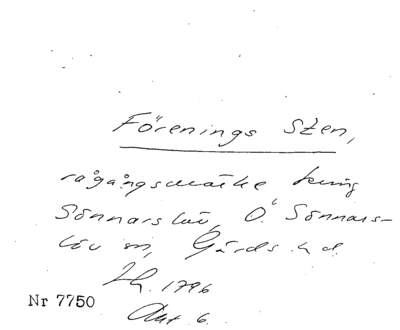 Förenings Sten,
rågångsmärke kring
Sönnarslöv, Ö. Sönnars-
löv sn, Gärds hd.
1796
Nr 7750
Akt 6.